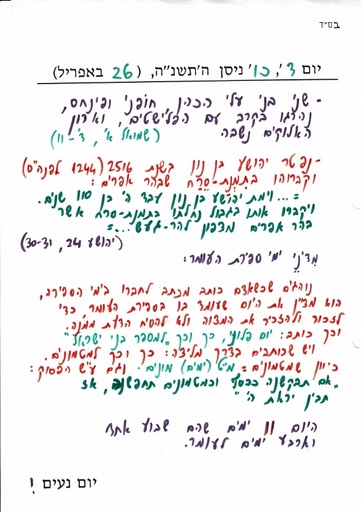 בס״ד
יום ד׳, כו׳ ניסן ה׳תשנ״ה, (26 באפריל)
- שני בני עלי הכהן, חופני ופינחס,
נהרגו בקרב עם הפלישטים, וארון
האלוקים נשבה (שמואל א׳, ד׳-יו)
- נפטר יהושע בן נון בשנת 2516 (1244 לפנה״ס)
וקברוהו בתמנת-סרח שבהר אפרים:
=...וימת יהושע בן נון עבד ה׳ בן 110 שנים.
ויקברו אותו בגבול נחלתו בתמנת-סרח אשר
בהר אפרים מצפון להר-געש...=
(יהושע 24, וד-30)
מדיני ימי ספירת העומר:
נוהגים שכשאדם כותב מכתב לחברו בימי הספירה,
הוא מציין את היום שעומד בו בספירת העומר, כדי
לזכור ולהזכיר את המצוה ולא להסיח הדעת ממנה.
וכך כותב: יום פלוני, כך וכך למספר בני ישראל.
ויש שכותבים בדרך מליצה: כך וכך למטמונים.
כיוון שמטמונים = מ״ט (ימים) מונים. וגם ע״ש הפסוק:
״אם תבקשנה ככסף וכמטמונים תחפשנה, אז
תבין יראת ה׳״
היום 11 ימים שהם שבוע אחד
וארבע ימים לעומר.
יום נעים !